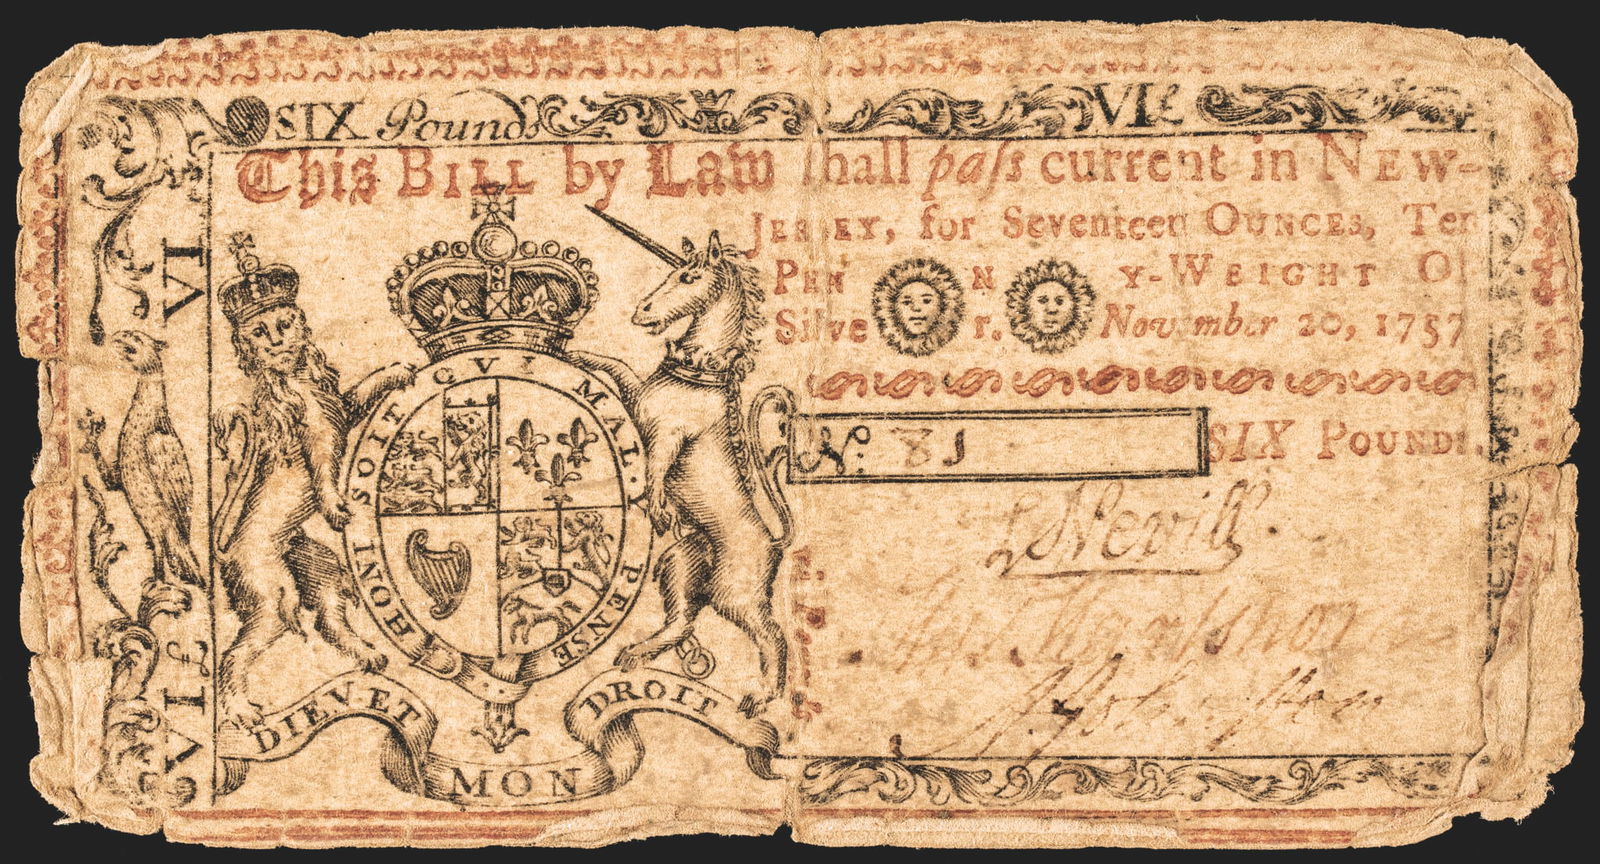 SIX Pounds VI£
This BILL by Law shall paſs current in NEW-
JERSEY, for Seventeen OUNCES, Ten
PEN N Y-WEIGHT O
Silve r. November 20, 1757
No. 81 SIX POUNDS.
HONI SOIT QVI MAL Y PENSE
DIEV ET MON DROIT
VI
VI£
S Nevill